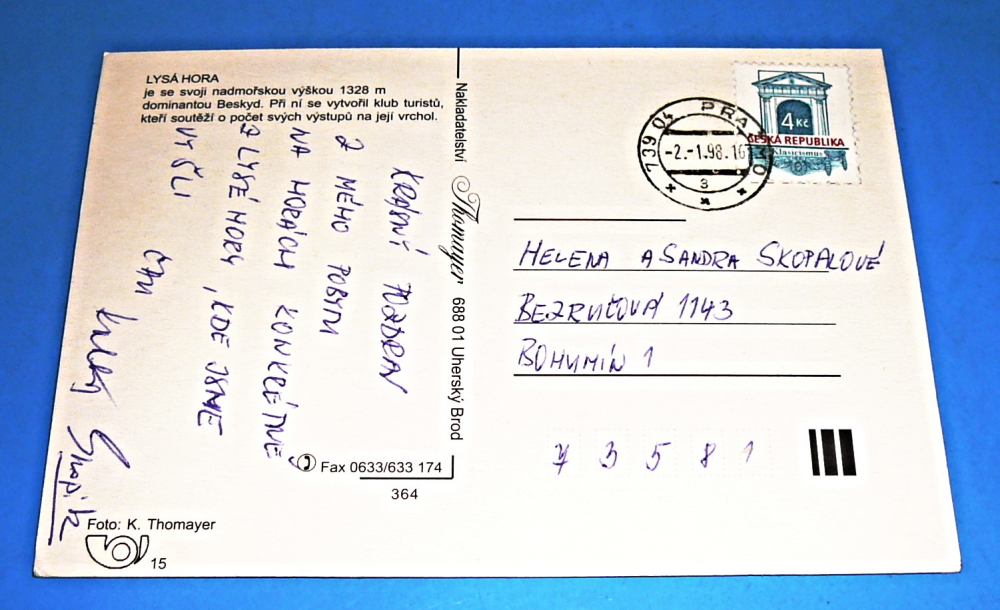 LYSÁ HORA
je se svoji nadmořskou výškou 1328 m
dominantou Beskyd. Při ní se vytvořil klub turistů,
kteří soutěží o počet svých výstupů na její vrchol.
KRÁSNÝ POZDRAV
Z MÉHO POBYTU
NA HORÁCH KONKRÉTNĚ
Z LYSÉ HORY, KDE JSME
VYŠLI
ČAU
Skopík
Foto: K. Thomayer
15
Nakladatelství Thomayer 688 01 Uherský Brod
Fax 0633/633 174
364
739 04 PRAŽMO
-2.-1.98.16
3
4 Kč
ČESKÁ REPUBLIKA
Klasicismus
HELENA A SANDRA SKOPALOVÉ
BEZRUČOVA 1143
BOHUMÍN 1
7 3 5 8 1